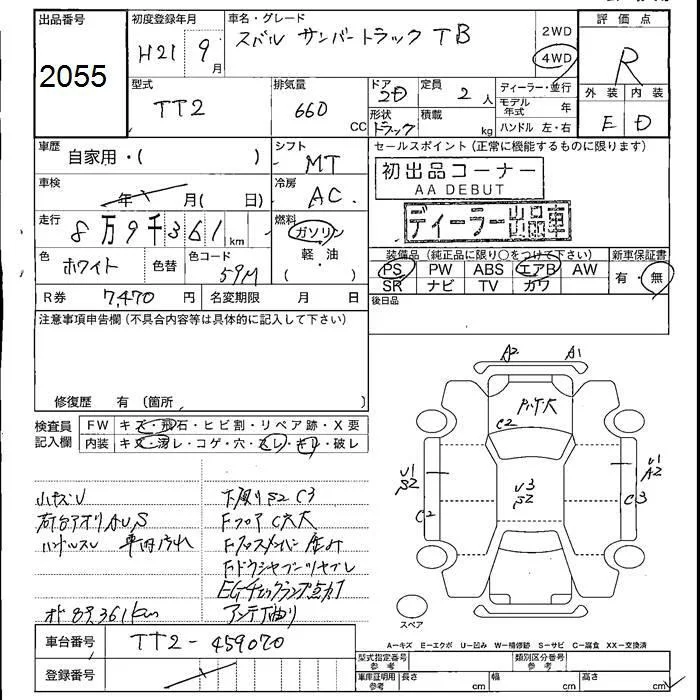 出品番号
2055
初度登録年月
H21 9月
車名・グレード
スバル サンバートラック TB
2WD
4WD
評価点
R
外装 内装
E D
型式
TT2
排気量
660 CC
ドア
2D
形状
トラック
定員
2人
積載
kg
ディーラー・並行
モデル年式 年
ハンドル 左・右
車歴
自家用・( )
シフト
MT
セールスポイント(正常に機能するものに限ります)
初出品コーナー
AA DEBUT
ディーラー出品車
車検
年 月( 日)
冷房
AC
走行
8万9千361km
燃料
ガソリン
軽・油
色
ホワイト
色替
色コード
59M
装備品(純正品に限り○をつけて下さい)
新車保証書
PS PW ABS エアB AW
SR ナビ TV カワ
有・無
R券 7,470円
名変期限 月 日
後日品
注意事項申告欄(不具合内容等は具体的に記入して下さい)
修復歴 有(箇所 )
検査員記入欄
FW キズ・飛石・ヒビ割・リペア跡・X要
内装 キズ・汚レ・コゲ・穴・スレ・キレ・破レ
小キズU
荷台アオリAUS
ハンドルスレ 車内汚れ
オド89,361km
下廻りS2 C3
Fフロア C穴大
Fクロスメンバー
Fドライブシャフトブーツヤブレ
EGチェックランプ点灯
アンテナ曲り
A2 A1
C2
U1
S2
C2
U3
S2
U1
A2
C3
スペア
A=キズ E=エクボ U=凹み W=補修跡 S=サビ C=腐食 XX=交換済
車台番号
TT2-459070
登録番号
型式指定番号
参考
類別区分番号
参考
車庫証明用
参考
長さ cm
幅 cm
高さ cm